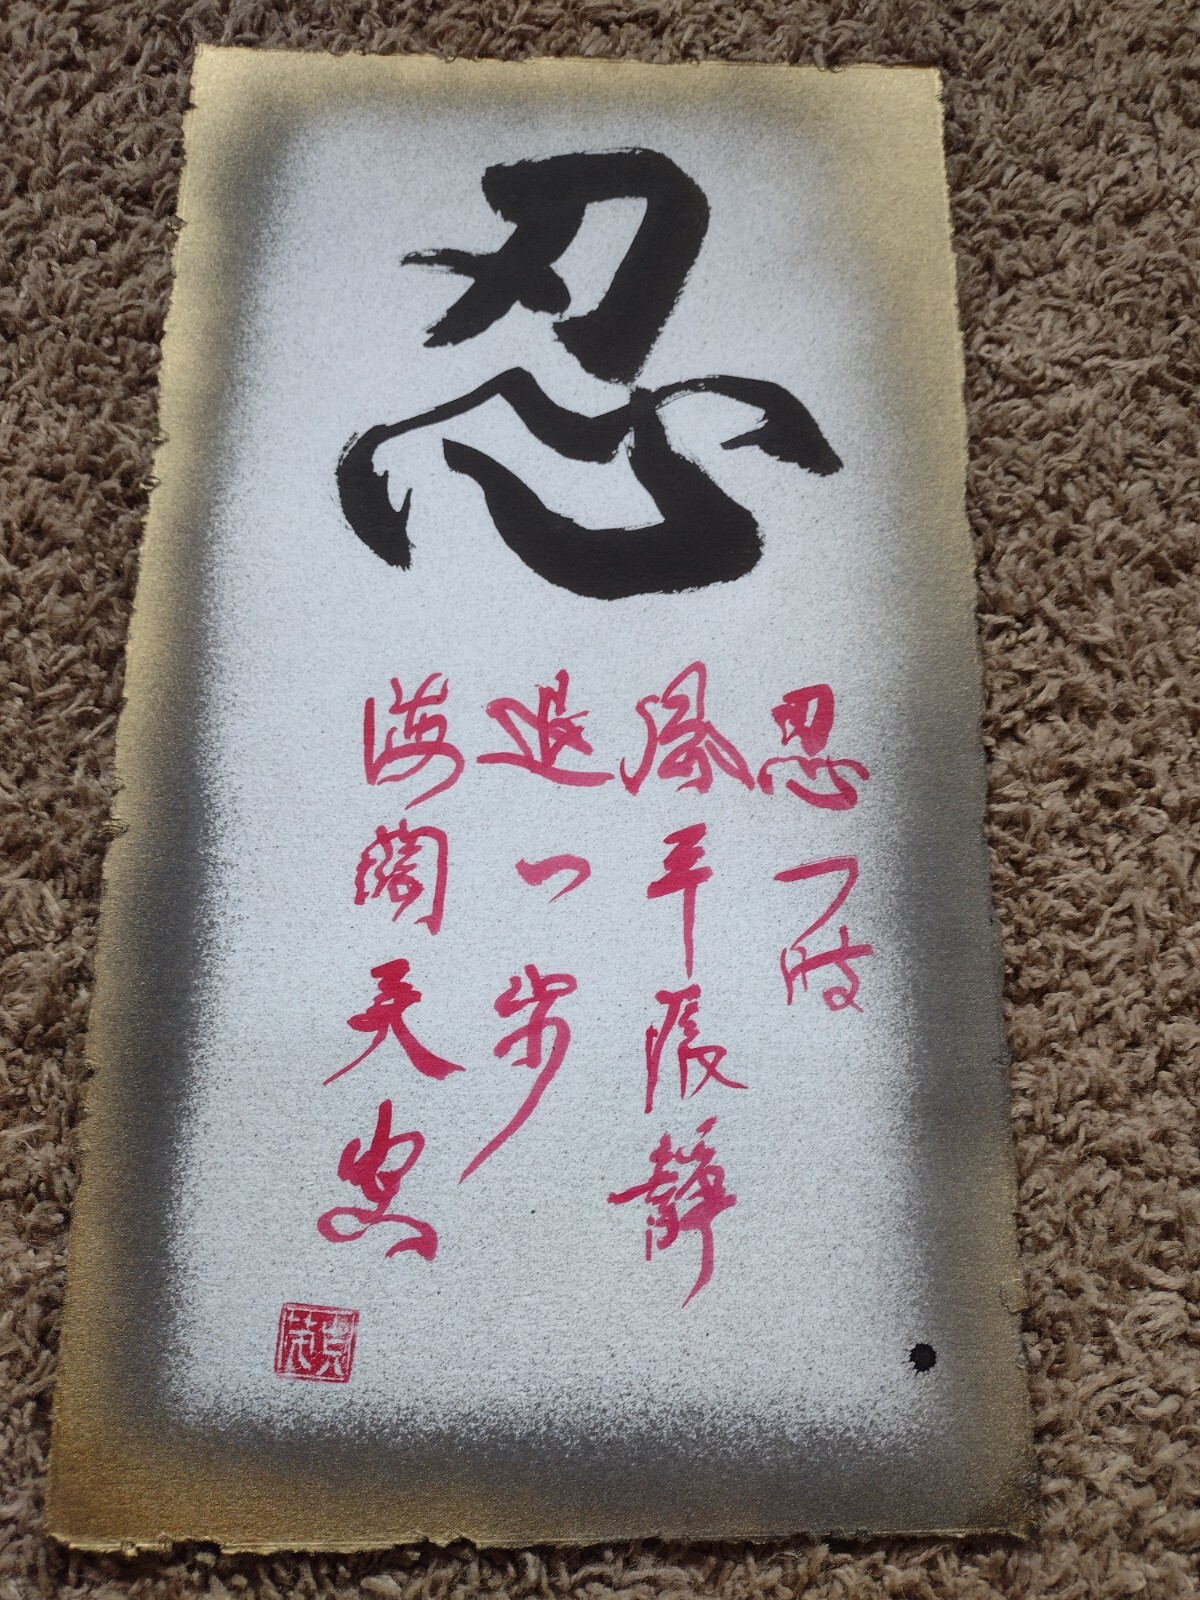 忍
忍一時
風平浪靜
退一步
海闊天空